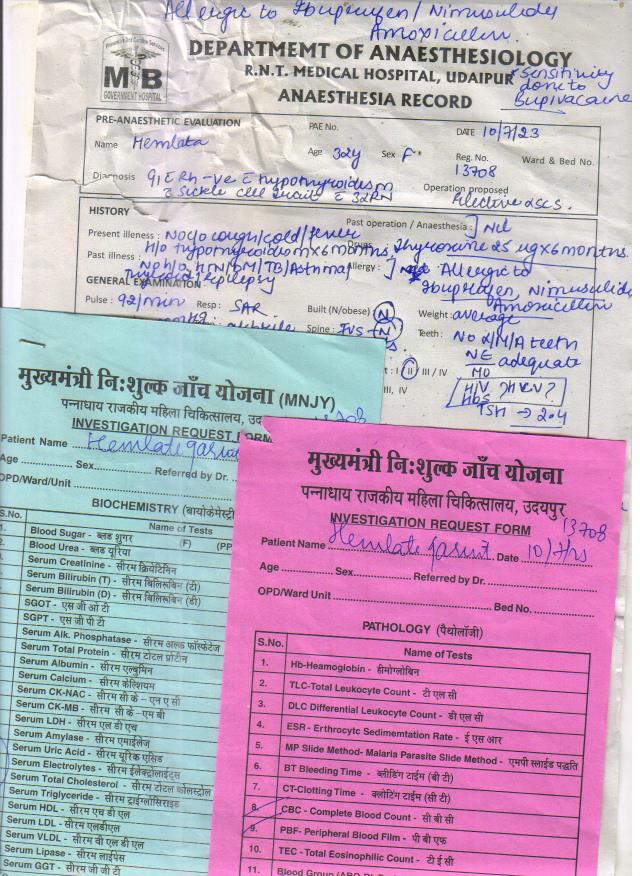 Allergic to Ibuprofen/ Nimusulides
Amoxicillin.
DEPARTMEMT OF ANAESTHESIOLOGY
R.N.T. MEDICAL HOSPITAL, UDAIPUR
ANAESTHESIA RECORD
Sensitivity
done to
Bupivacaine
MB
GOVERNMENT HOSPITAL
PRE-ANAESTHETIC EVALUATION
PAE No.
DATE 10/7/23
Name Hemlata
Age 32y Sex F
Reg. No. 13708
Ward & Bed No.
Diagnosis
Rh -ve hypothyroidism
sickle cell trait
Operation proposed
Elective LSCS.
HISTORY
Past operation / Anaesthesia : Nil
Present illness : No c/o cough/cold/fever
H/o hypothyroidism x 6 months,
Thyroxine 25 ug x 6 months.
Past illness : No h/o HTN/DM/TB/Asthma
epilepsy
Allergy : Allergic to
Ibuprofen, Nimusulide
Amoxicillin
GENERAL EXAMINATION
Pulse : 92/min Resp : SAR
Built (N/obese) : N
Weight : average
Spine : IVS - N
Teeth : No teeth
adequate
: I / II / III / IV
III, IV
HIV
HbS
TSH → 2.4
मुख्यमंत्री निःशुल्क जाँच योजना (MNJY)
पन्नाधाय राजकीय महिला चिकित्सालय, उदय
INVESTIGATION REQUEST FORM
Patient Name Hemlata
Age Sex Referred by Dr.
OPD/Ward/Unit
BIOCHEMISTRY (बायोकेमेस्ट्री
S.No. Name of Tests
1. Blood Sugar - ब्लड शुगर (F) (PP
Blood Urea - ब्लड यूरिया
Serum Creatinine - सीरम क्रियेटिनिन
Serum Bilirubin (T) - सीरम बिलिरूबिन (टी)
Serum Bilirubin (D) - सीरम बिलिरूबिन (डी)
SGOT - एस जी ओ टी
SGPT - एस जी पी टी
Serum Alk. Phosphatase - सीरम अल्क फॉस्फेटेज
Serum Total Protein - सीरम टोटल प्रोटीन
Serum Albumin - सीरम एल्बुमिन
Serum Calcium - सीरम केल्शियम
Serum CK-NAC - सीरम सी के - एन ए सी
Serum CK-MB - सीरम सी के - एम बी
Serum LDH - सीरम एल डी एच
Serum Amylase - सीरम एमाईलेज
Serum Uric Acid - सीरम यूरिक एसिड
Serum Electrolytes - सीरम ईलेक्ट्रोलाईट्स
Serum Total Cholesterol - सीरम टोटल कोलस्ट्रोल
Serum Triglyceride - सीरम ट्राईग्लीसिराइड
Serum HDL - सीरम एच डी एल
Serum LDL - सीरम एलडीएल
Serum VLDL - सीरम वी एल डी एल
Serum Lipase - सीरम लाईपेस
Serum GGT - सीरम जी जी टी
मुख्यमंत्री निःशुल्क जाँच योजना
पन्नाधाय राजकीय महिला चिकित्सालय, उदयपुर
INVESTIGATION REQUEST FORM 13708
Patient Name Hemlata Date 10/7/23
Age Sex Referred by Dr.
OPD/Ward Unit Bed No.
PATHOLOGY (पैथोलॉजी)
S.No. Name of Tests
1. Hb-Heamoglobin - हीमोग्लोबिन
2. TLC-Total Leukocyte Count - टी एल सी
3. DLC Differential Leukocyte Count - डी एल सी
4. ESR - Erthrocytic Sedimemtation Rate - ई एस आर
5. MP Slide Method- Malaria Parasite Slide Method - एमपी स्लाईड पद्धति
6. BT Bleeding Time - ब्लीडिंग टाईम (बी टी)
7. CT-Clotting Time - क्लोटिंग टाईम (सी टी)
8. CBC - Complete Blood Count - सी बी सी
9. PBF- Peripheral Blood Film - पी बी एफ
10. TEC - Total Eosinophilic Count - टी ई सी
11. Blood Group